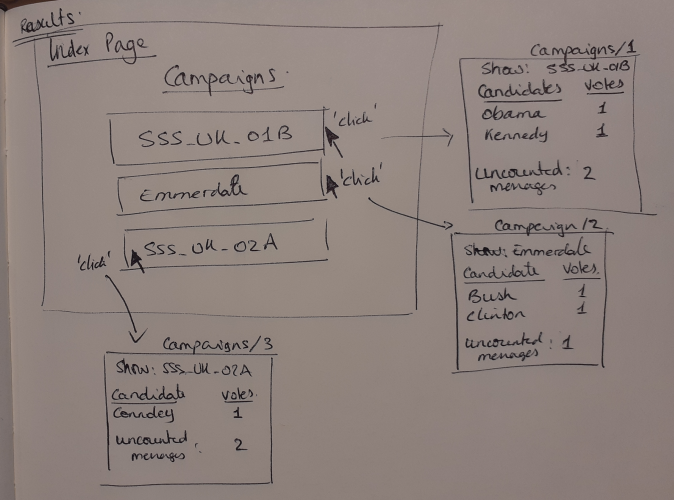 Results.
Index Page
Campaigns.
SSS_UK_01B
'click'
Emmerdale
'click'
SSS_UK_02A
'click'
Campaigns/1
Show: SSS_UK_01B
Candidates Votes
Obama 1
Kennedy 1
Uncounted: 2
messages
Campaign/2.
Show: Emmerdale
Candidate Votes.
Bush 1
Clinton 1
Uncounted : 1
messages
Campaigns/3
Show: SSS_UK_02A
Candidate Votes.
1
Uncounted : 2
messages